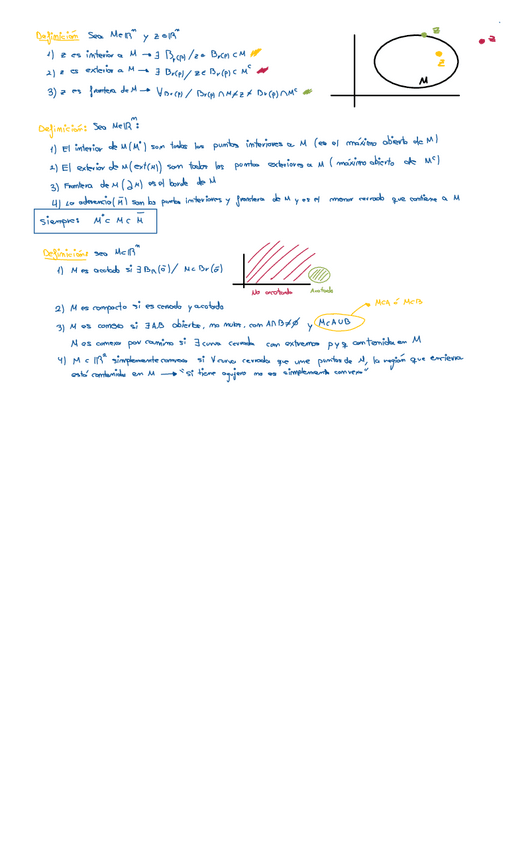 Definición: Sea M⊂ℝⁿ y z∈ℝⁿ
z
z
z
M
1) z es interior a M → ∃ Br(p) / z∈ Br(p) ⊂ M
2) z es exterior a M → ∃ Br(p) / z∈ Br(p) ⊂ Mᶜ
3) z es frontera de M → ∀Br(p) / Br(p) ∩ M≠∅ ≠ Br(p) ∩ Mᶜ
Definición: Sea M⊂ℝⁿ:
1) El interior de M (M°) son todos los puntos interiores a M (es el máximo abierto de M)
2) El exterior de M (ext(M)) son todos los puntos exteriores a M (máximo abierto de Mᶜ)
3) Frontera de M (∂M) es el borde de M
4) La adherencia (M̅) son los puntos interiores y frontera de M y es el menor cerrado que contiene a M
Siempre: M° ⊂ M ⊂ M̅
Definición: sea M⊂ℝⁿ
1) M es acotado si ∃ Br(ō) / M⊂ Br(ō)
No acotado
Acotado
2) M es compacto si es cerrado y acotado
M⊂A ó M⊂B
3) M es conexo si ∃ A,B abiertos, no nulos, con A∩B≠∅ y M⊂A∪B
M es conexo por caminos si ∃ curva cerrada con extremos p y q contenida en M
4) M ⊂ ℝⁿ simplemente conexo si ∀ curva cerrada que une puntos de M, la región que encierra
está contenida en M → "si tiene agujero no es simplemente convexo"